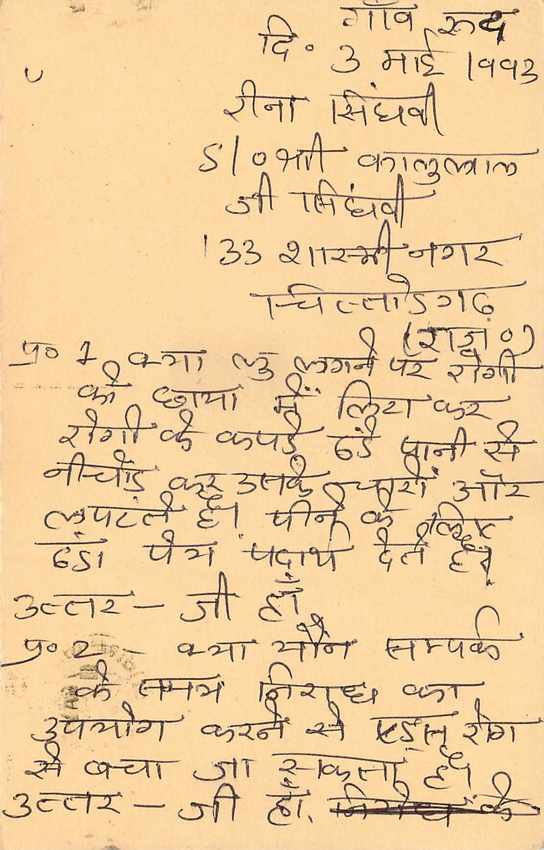 गाँव रूद
दि० 3 माई 1993
रीना सिंघवी
S/० श्री कालुलाल
जी सिंघवी
133 शास्त्री नगर
चित्तौडगढ़
(राज०)
प्र० 1 क्या लु लगने पर रोगी
को छाया में लिटा कर
रोगी के कपडे ठंडे पानी से
नीचोड़ कर उसके चारों और
लपटते है। पीने के लिए
ठंडा पेय पदार्थ देते है।
उत्तर - जी हाँ
प्र० 2 - क्या यौन सम्पर्क
के समय निरोध का
उपयोग करने से एड्स रोग
से बचा जा सकता है।
उत्तर - जी हां.